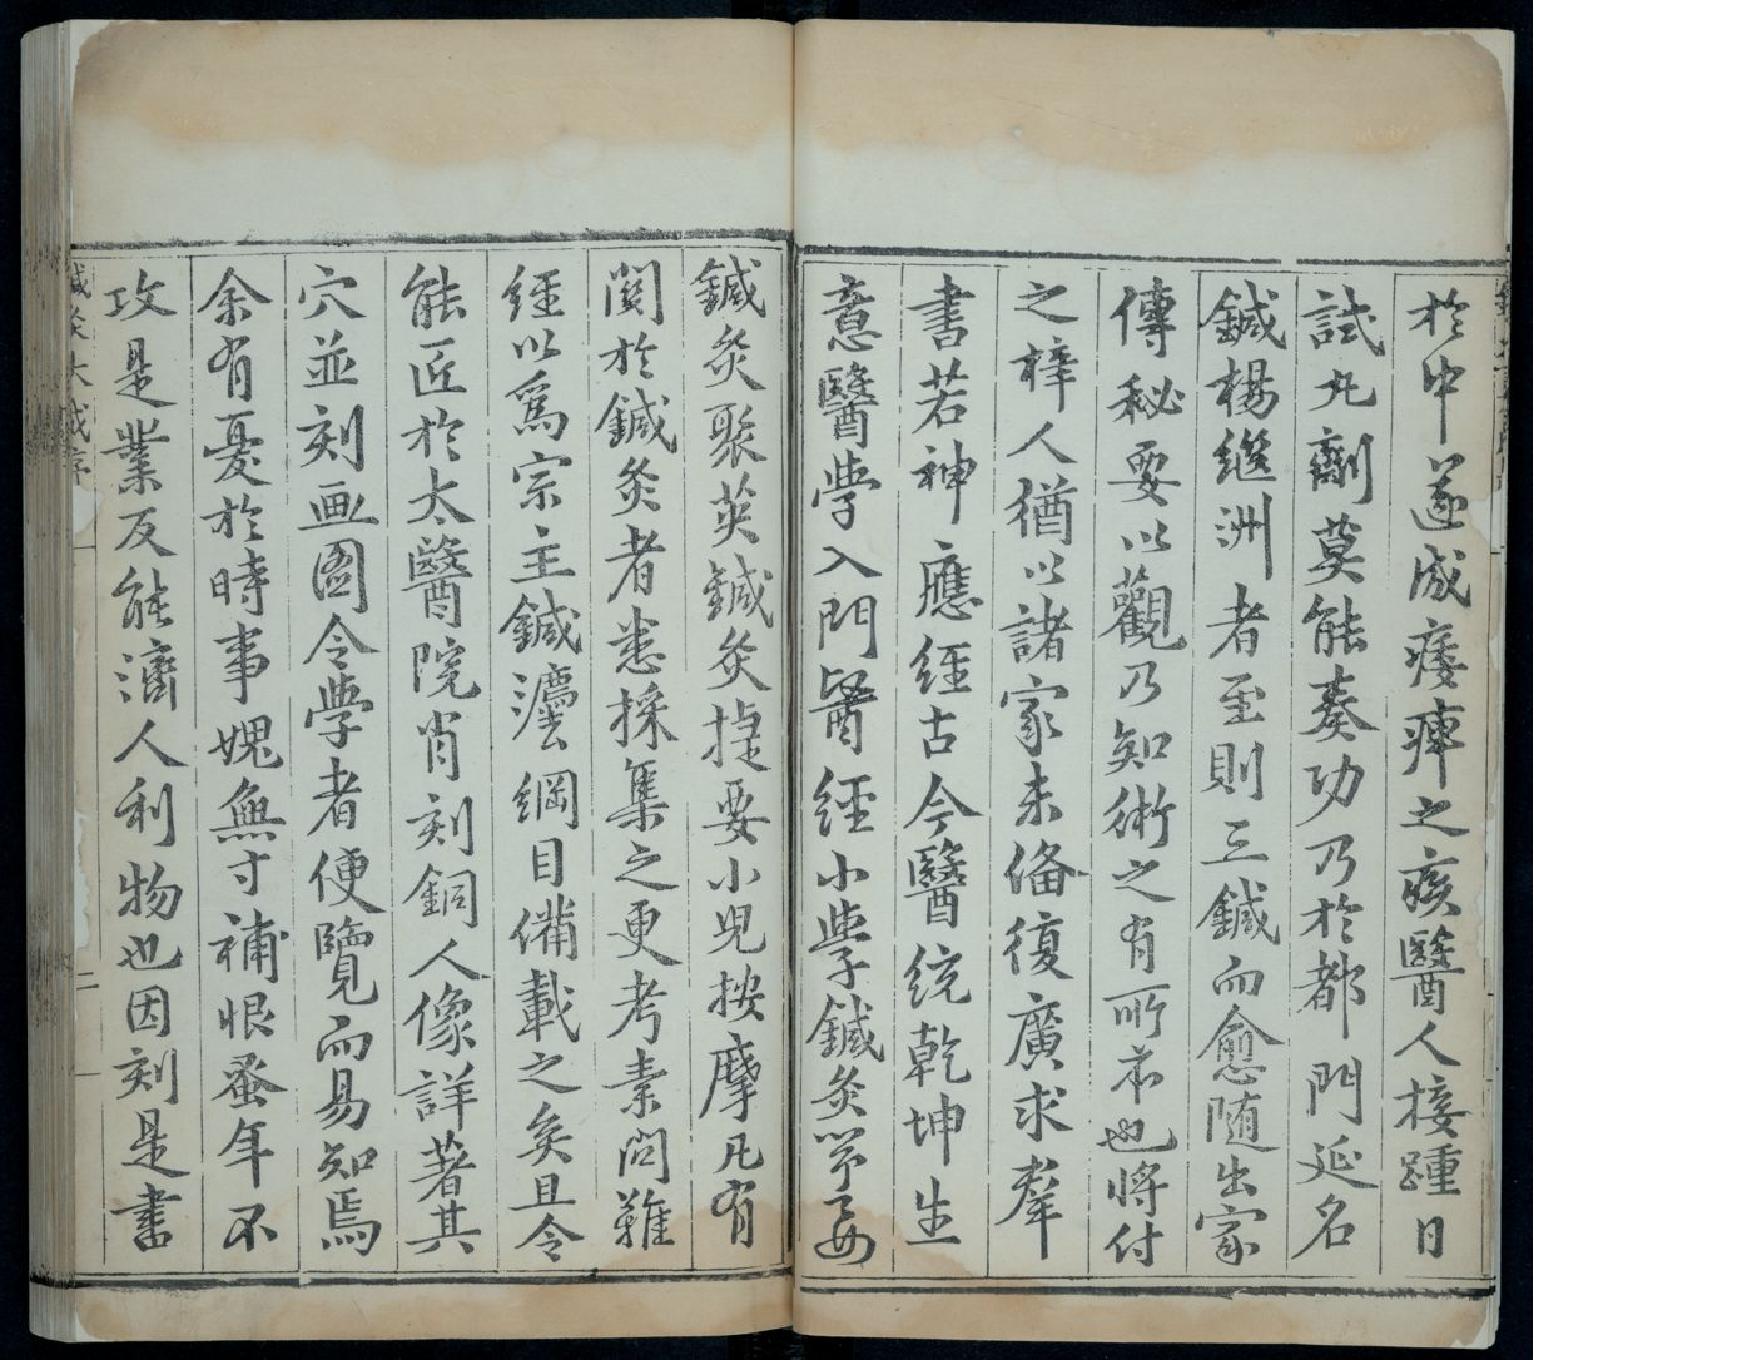 於中遂成痿痺之疾醫人接踵日
試丸劑莫能奏功乃於都門延名
鍼楊繼洲者至則三鍼而愈随出家
傳秘要以觀乃知術之有所本也將付
之梓人猶以諸家未俻復廣求羣
書若神應經古今醫統乾坤生
意醫學入門醫經小學鍼灸節要
鍼灸聚英鍼灸捷要小兒按摩凡有
関於鍼灸者悉採集之更考素問難
經以爲宗主鍼灋綱目備載之矣且令
能匠於太醫院肖刻銅人像詳著其
穴並刻画圖令學者便覽而易知焉
余有憂於時事媿無寸補恨蚤年不
攻是業反能濟人利物也因刻是書
鍼灸大成序
二